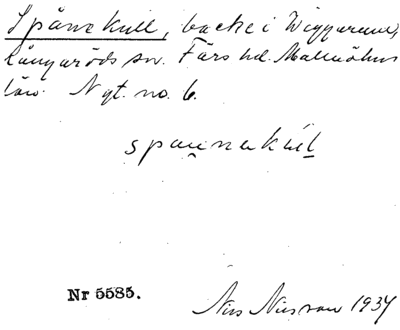 Spånekull, backe i Viggarum,
Långaröds sn. Färs hd. Malmöhus
län. Nyt. no. 6.
spaunekull
Nr 5585.
Nils Nilsson 1934